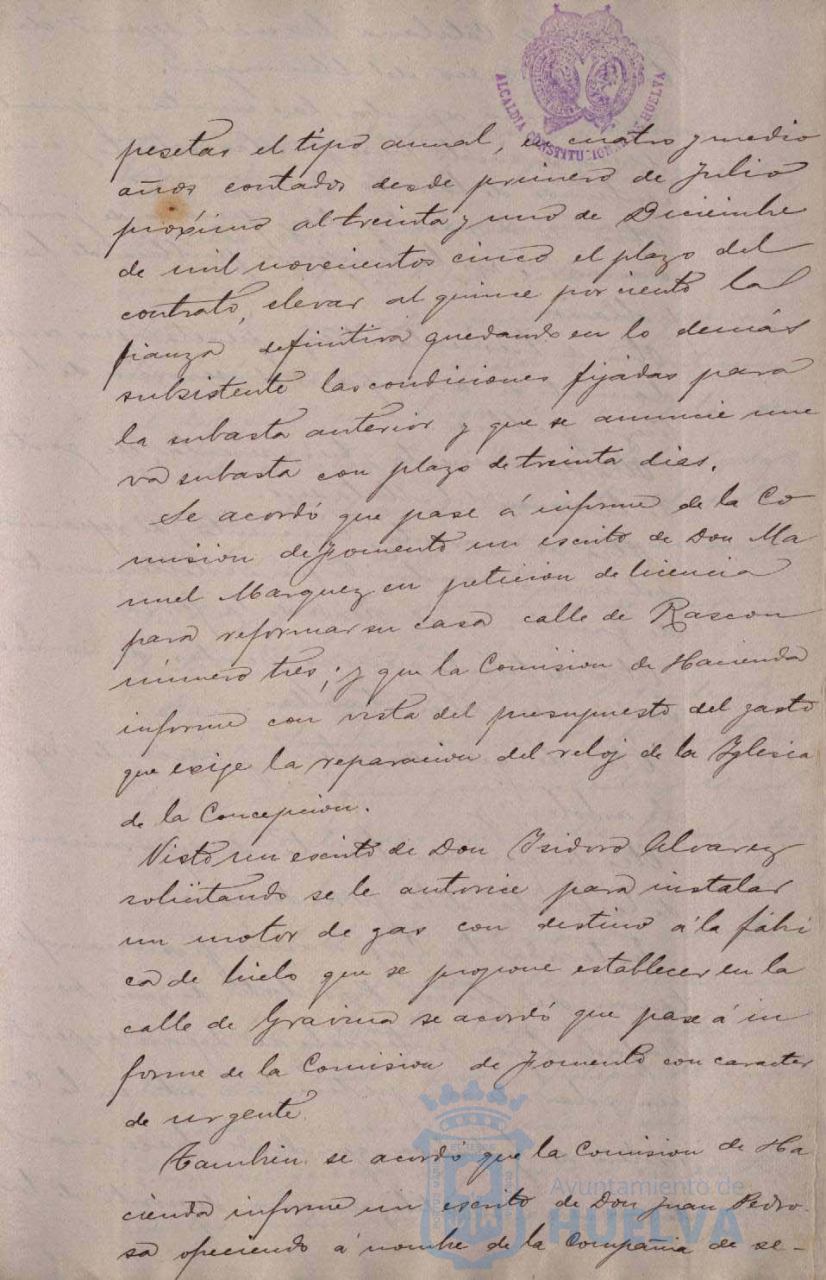 ALCALDIA CONSTITUCIONAL DE HUELVA
pesetas el tipo anual, en cuatro y medio
años contados desde primero de Julio
próximo al treinta y uno de Diciembre
de mil novecientos cinco el plazo del
contrato, elevar al quince por ciento la
fianza definitiva quedando en lo demás
subsistente las condiciones fijadas para
la subasta anterior y que se anuncie nue
va subasta con plazo de treinta dias.
Se acordó que pase á informe de la Co
mision de fomento un escrito de Don Ma
nuel Marquez en peticion de licencia
para reformar su casa calle de Rascon
número tres; y que la Comision de Hacienda
informe con vista del presupuesto del gasto
que exige la reparacion del reloj de la Iglesia
de la Concepcion.
Visto un escrito de Don Isidoro Alvarez
solicitando se le autorice para instalar
un motor de gas con destino á la fábri
ca de hielo que se propone establecer en la
calle de Gravina se acordó que pase á in
forme de la Comision de fomento con caracter
de urgente.
Tambien se acordó que la Comision de Ha
cienda informe un escrito de Don Juan Pedro
sa ofreciendo á nombre de la Compañia de se-
Ayuntamiento de
HUELVA